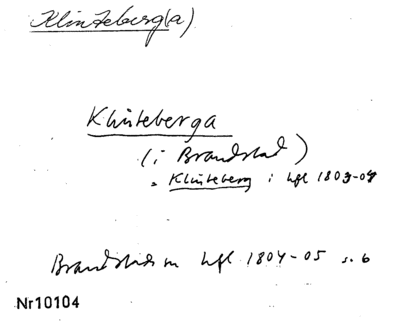 Klinteberg(a)
Klinteberga
(i Brandstad)
= Klinteberg i hfl 1803-04
Brandstads sn hfl 1804-05 s. 6
Nr10104